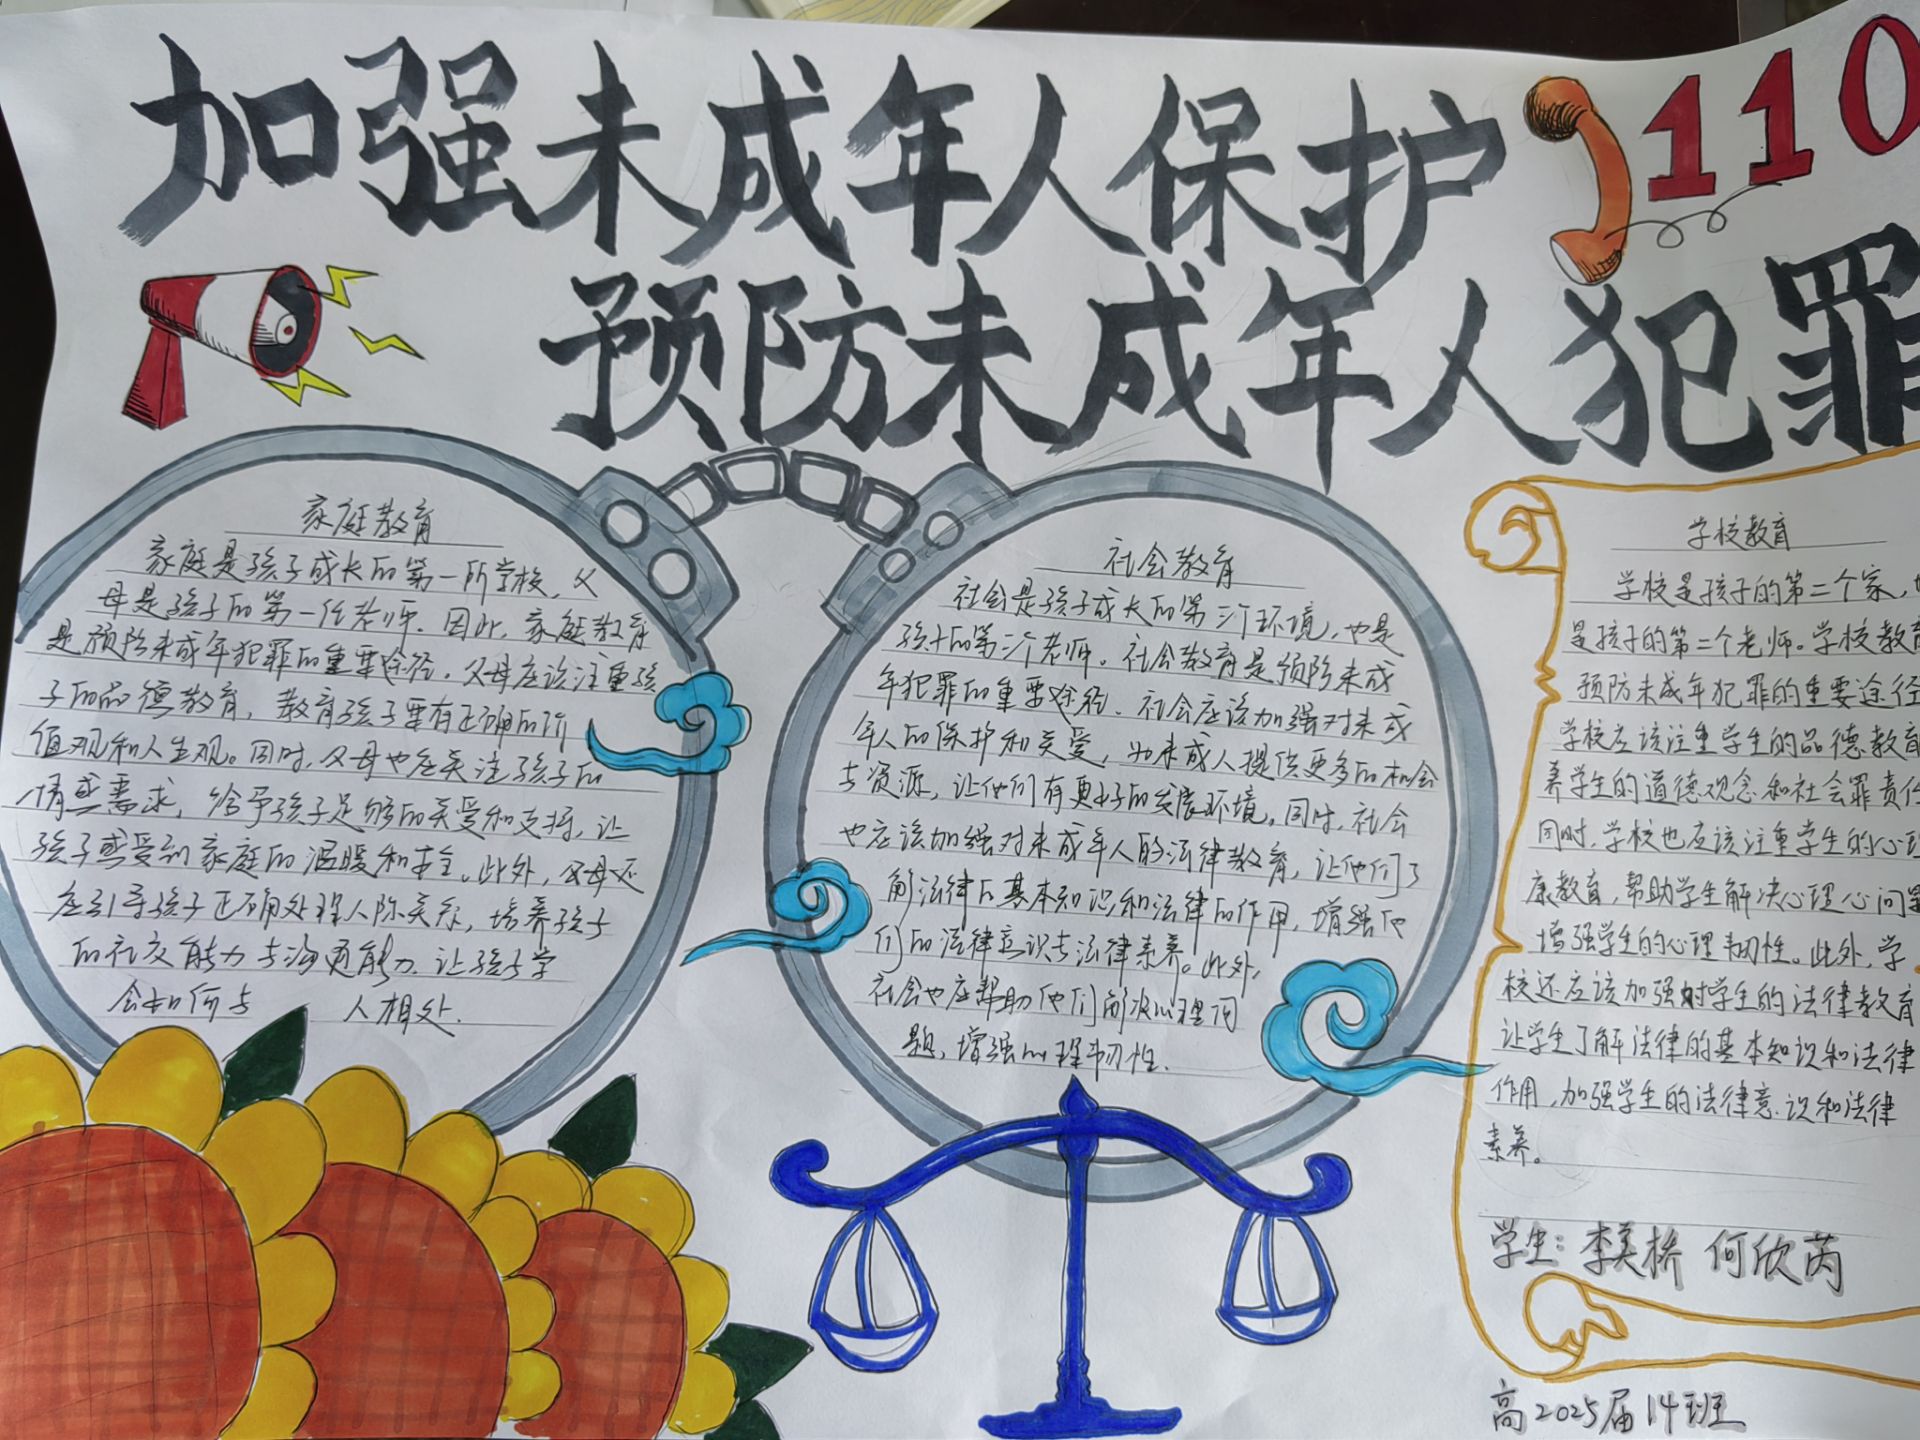 加强未成年人保护
110
预防未成年人犯罪
家庭教育
家庭是孩子成长的第一所学校，父
母是孩子的第一任老师。因此，家庭教育
是预防未成年犯罪的重要途径。父母应该注重孩
子的品德教育，教育孩子要有正确的价
值观和人生观。同时，父母也应关注孩子的
情感需求，给予孩子足够的关爱和支持，让
孩子感受到家庭的温暖和
此外，父母还
应引导孩子正确处理人际关系，培养孩子
的社交能力与沟通能力，让孩子学
会如何与 人相处.
社会教育
社会是孩子成长的第三个环境，也是
孩子的第三个老师。社会教育是预防未成
年犯罪的重要途径。社会应该加强对未成
年人的保护和关爱，为未成人提供更多的机会
与资源，让他们有更好的发展环境。同时，社会
也应该加强对未成年人的法律教育，让他们了
解法律的基本知识和法律的作用，增强他
们的法律意识与法律素养。此外，
社会也应帮助他们解决心理问
题，增强心理韧性.
学校教育
学校是孩子的第二个家，
是孩子的第二个老师。学校教育
预防未成年犯罪的重要途径
学校应该注重学生的品德教育
养学生的道德观念和社会罪责任
同时，学校也应该注重学生的心理
康教育，帮助学生解决心理心问题
增强学生的心理韧性。此外，学
校还应该加强对学生的法律教育
让学生了解法律的基本知识和法律
作用，加强学生的法律意识和法律
素养。
学生：李美桥 何欣芮
高2025届14班